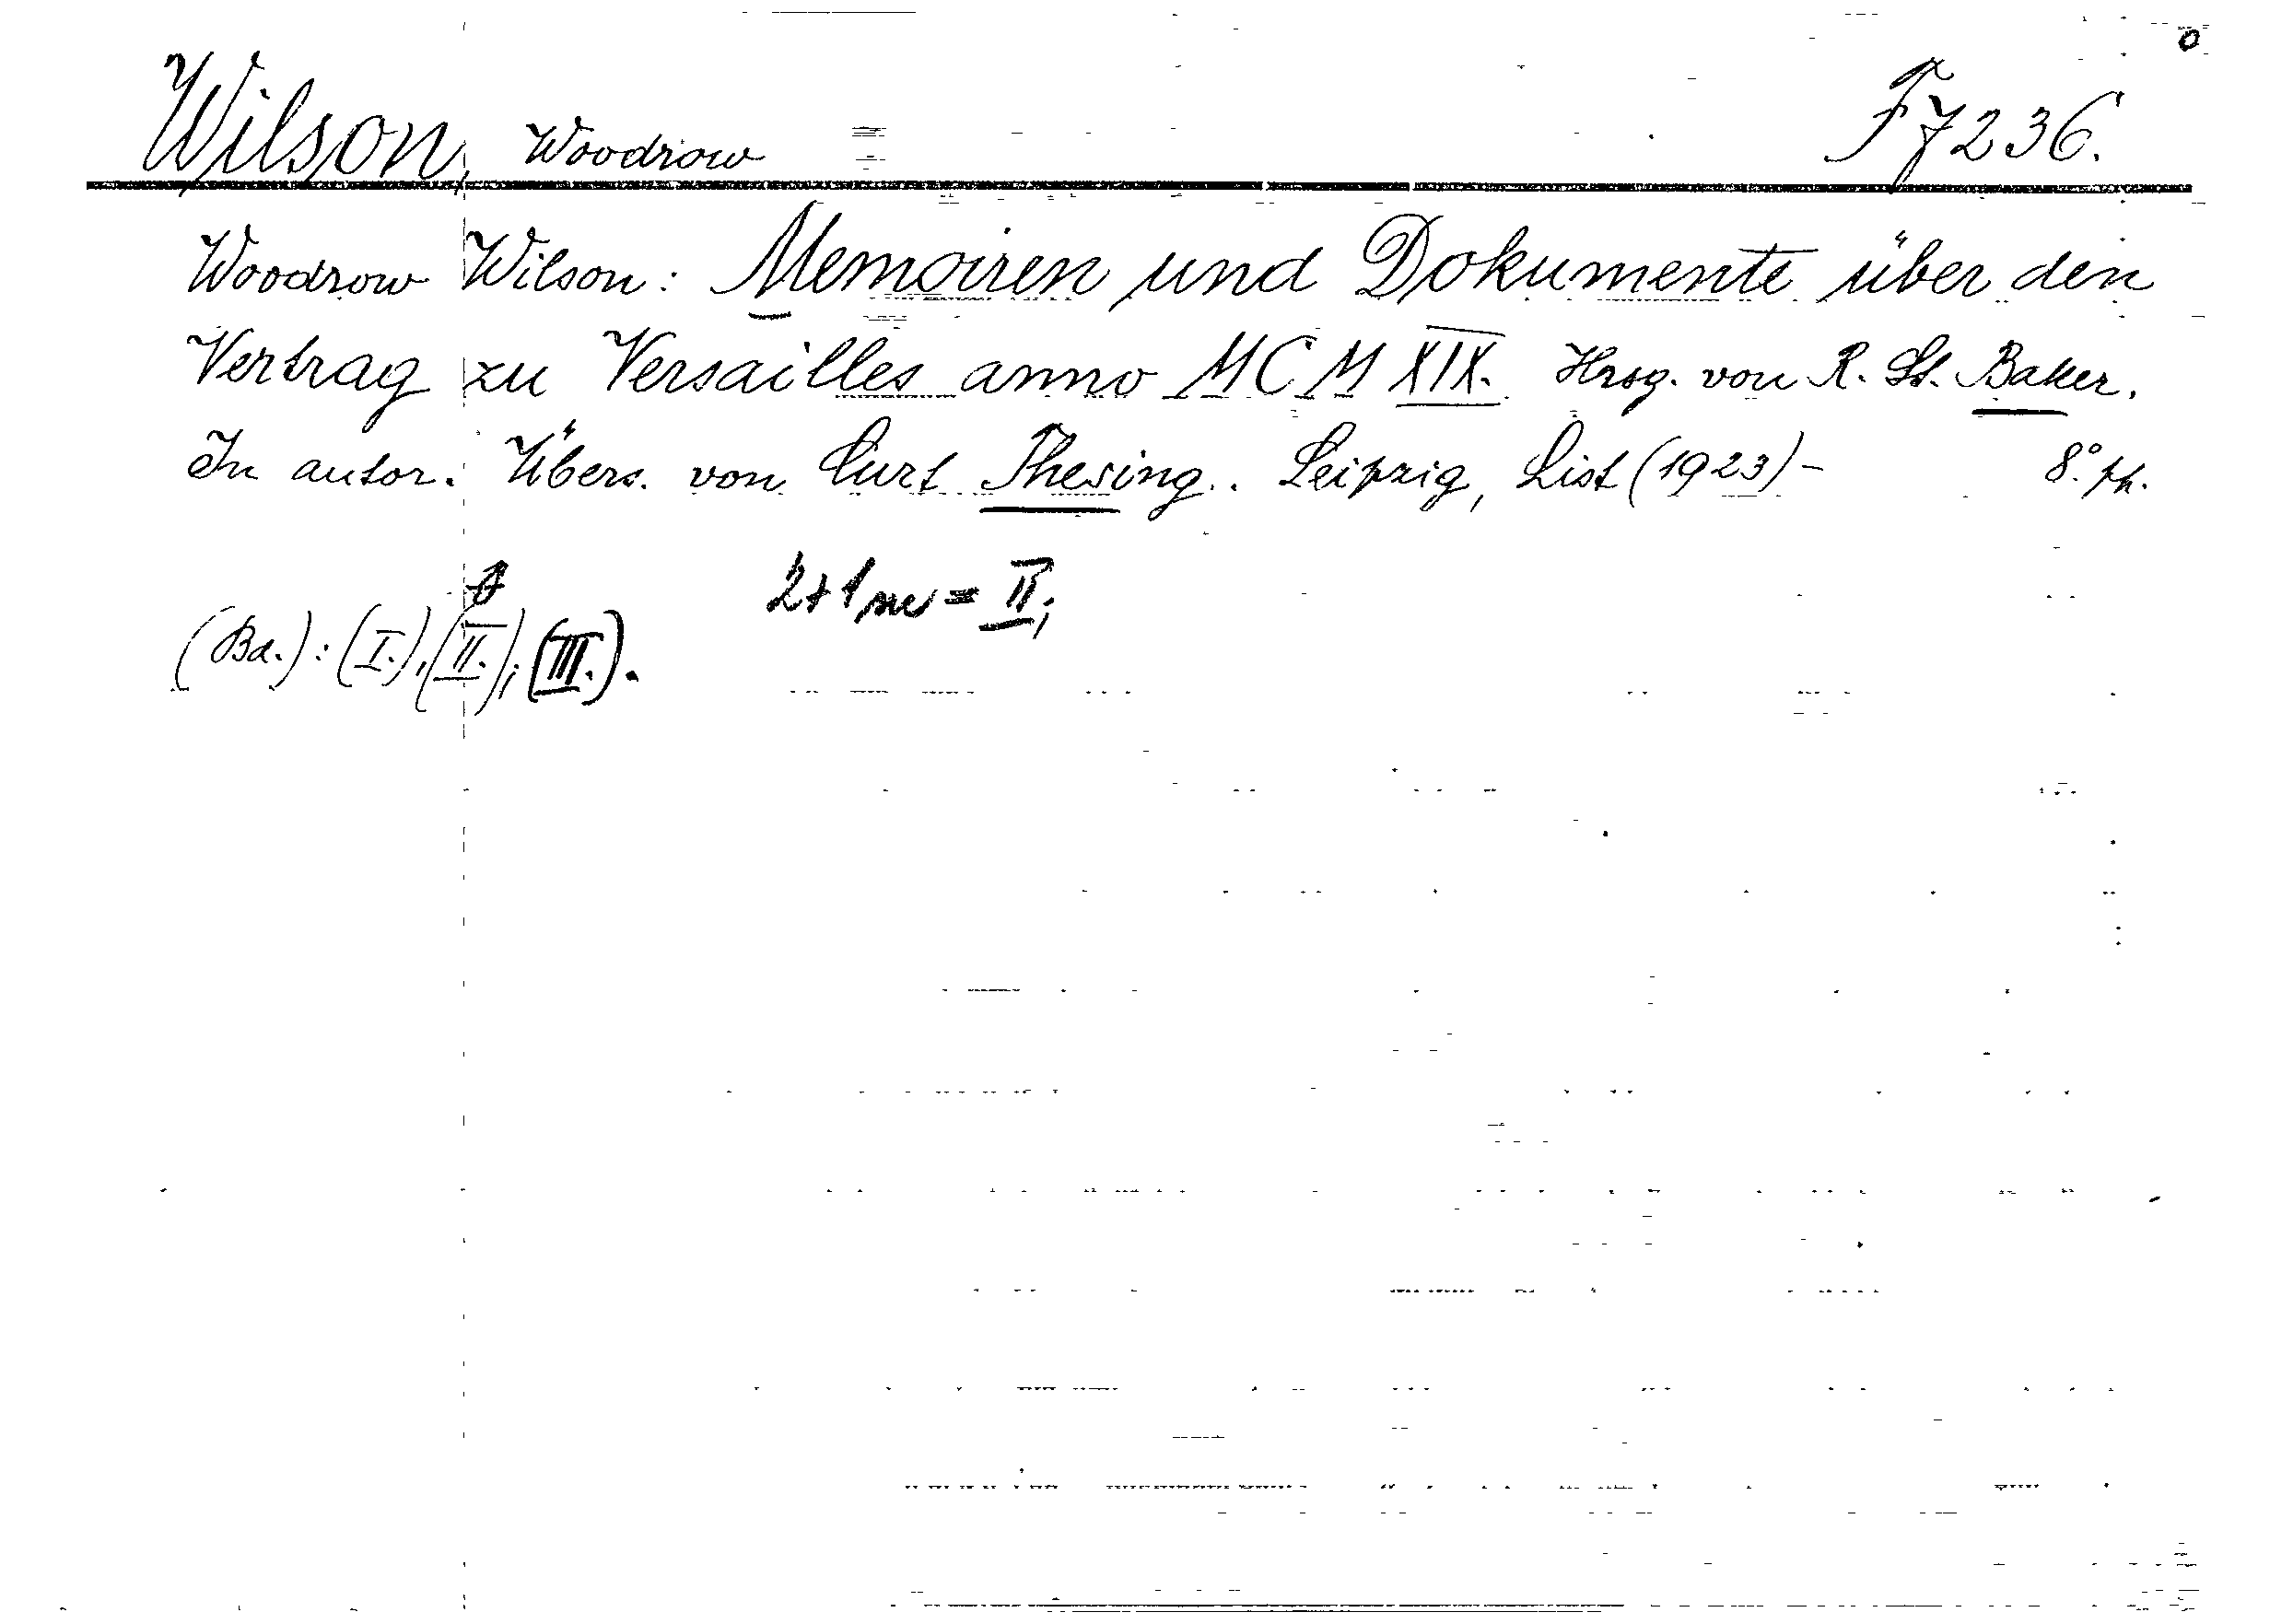 Wilson, Woodrow F 7236.
Woodrow Wilson: Memoiren und Dokumente über den
Vertrag zu Versailles anno MCMXIX. Hrsg. von R. St. Baker.
In autor. Übers. von Curt Thesing. Leipzig, List (1923)– 8°.
2+1 = II;
(Bd.): (I.), (II.); (III.).